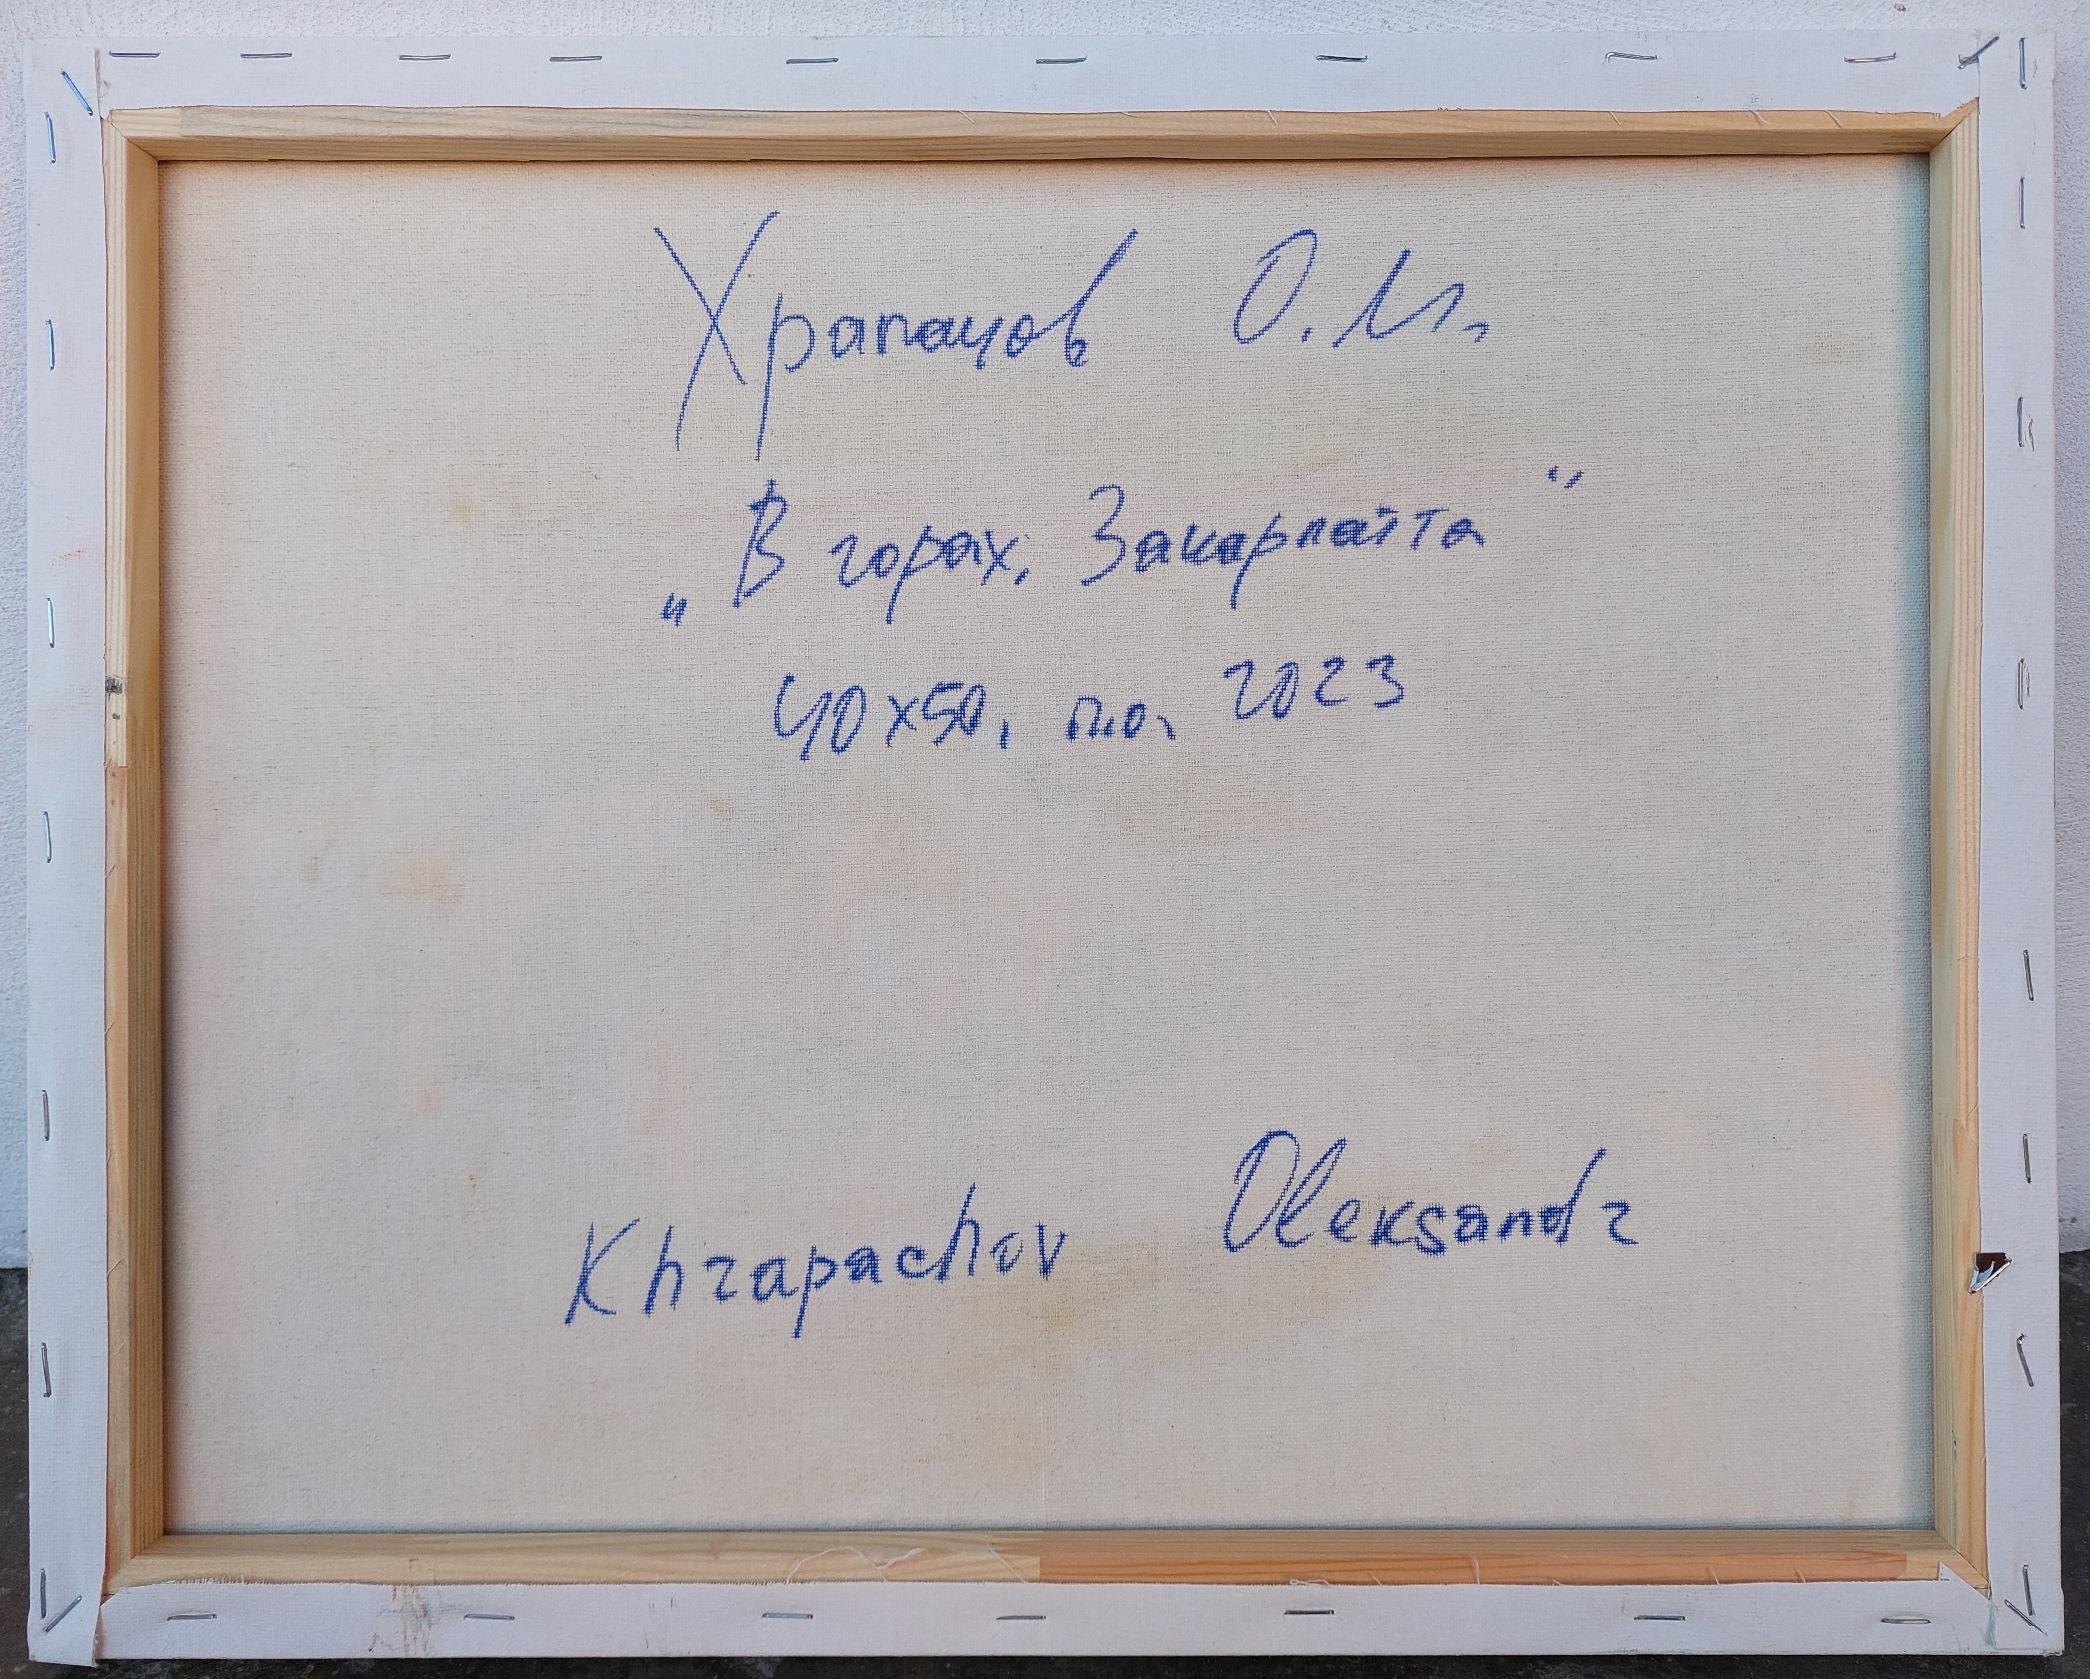 Храпачов О. И.
„В горах, Закарпаття"
40х50, п.о. 2023
Khrapachov Oleksandr